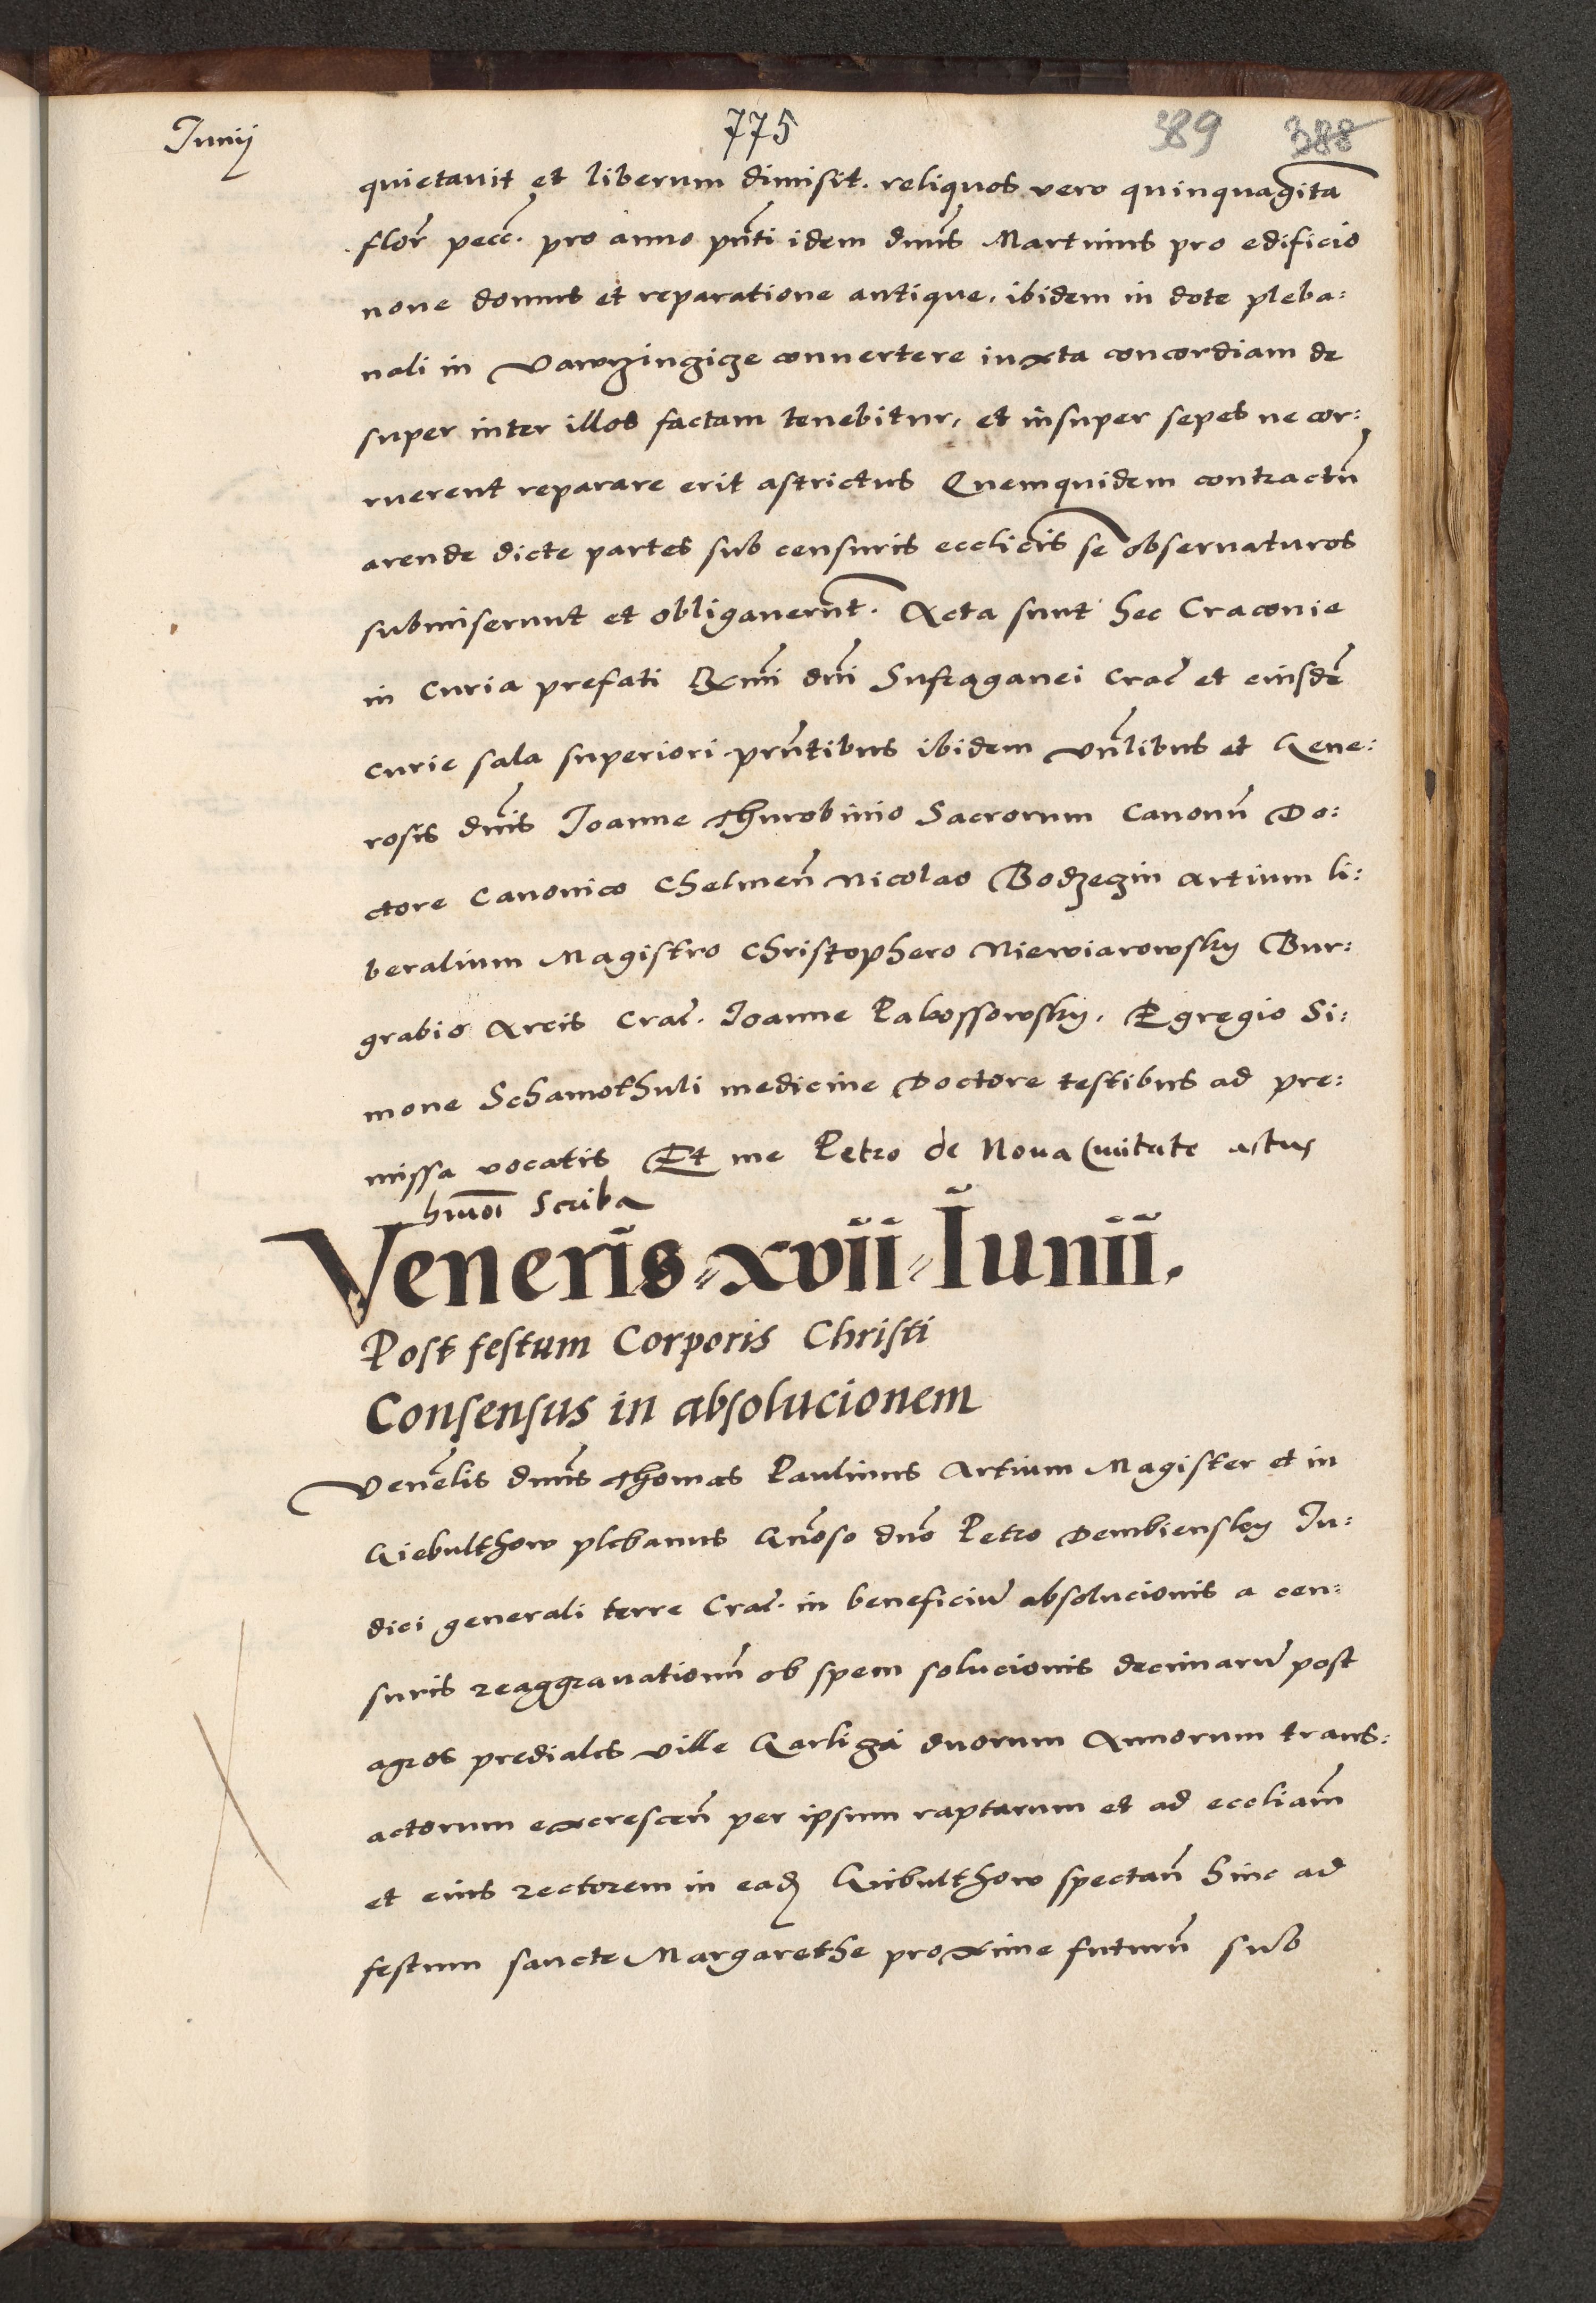 Junij
775
389 388
quietavit et liberum dimisit. reliquos vero quinquagita
flor pecc. pro anno pnti idem dnus Martinus pro edificio
nove domus et reparatione antique, ibidem in dote pleba:
nali in Vawrzingicze convertere iuxta concordiam de
super inter illos factam tenebitur, et insuper sepes ne cor:
ruerent reparare erit astrictus Quemquidem contractu
arende dicte partes sub censuris ecclicis se observaturos
submiserunt et obligaverunt. Acta sunt hec Cracovie
in Curia prefati Rxmi dni Suffraganei Crac et eiusde
curie sala superiori prntibus ibidem Vnlibus et Gene:
rosis dnis Joanne Thurobinio Sacrorum Canonu Do:
ctore Canonico Chelmen Nicolao Bodzeczin Artium li:
beralium Magistro Christophero Niewiarowsky Bur:
grabio Arcis Crac. Joanne Rakossowsky, Egregio Si:
mone Schamothuli medicine Doctore testibus ad pre:
missa vocatis Et me Petro de Nova Civitate actus
humoi Scriba
Veneris xvii Iunii.
Post festum Corporis Christi
Consensus in absolucionem
Venelis dnus Thomas Paulinus Artium Magister et in
Giebulthow plebanus Gnoso dno Petro Dembiensky Ju:
dici generali terre Crac. in beneficiu absolucionis a cen:
suris reaggravationu ob spem solucionis decimaru post
agros prediales ville Garliga duorum Annorum trans:
actorum excrescen per ipsum raptarum et ad eccliam
et eius rectorem in ead Gibulthow spectan hinc ad
festum sancte Margarethe proxime futuru sub